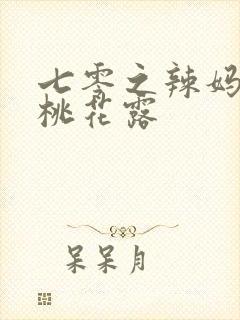 七零之辣妈
桃花露
呆呆月